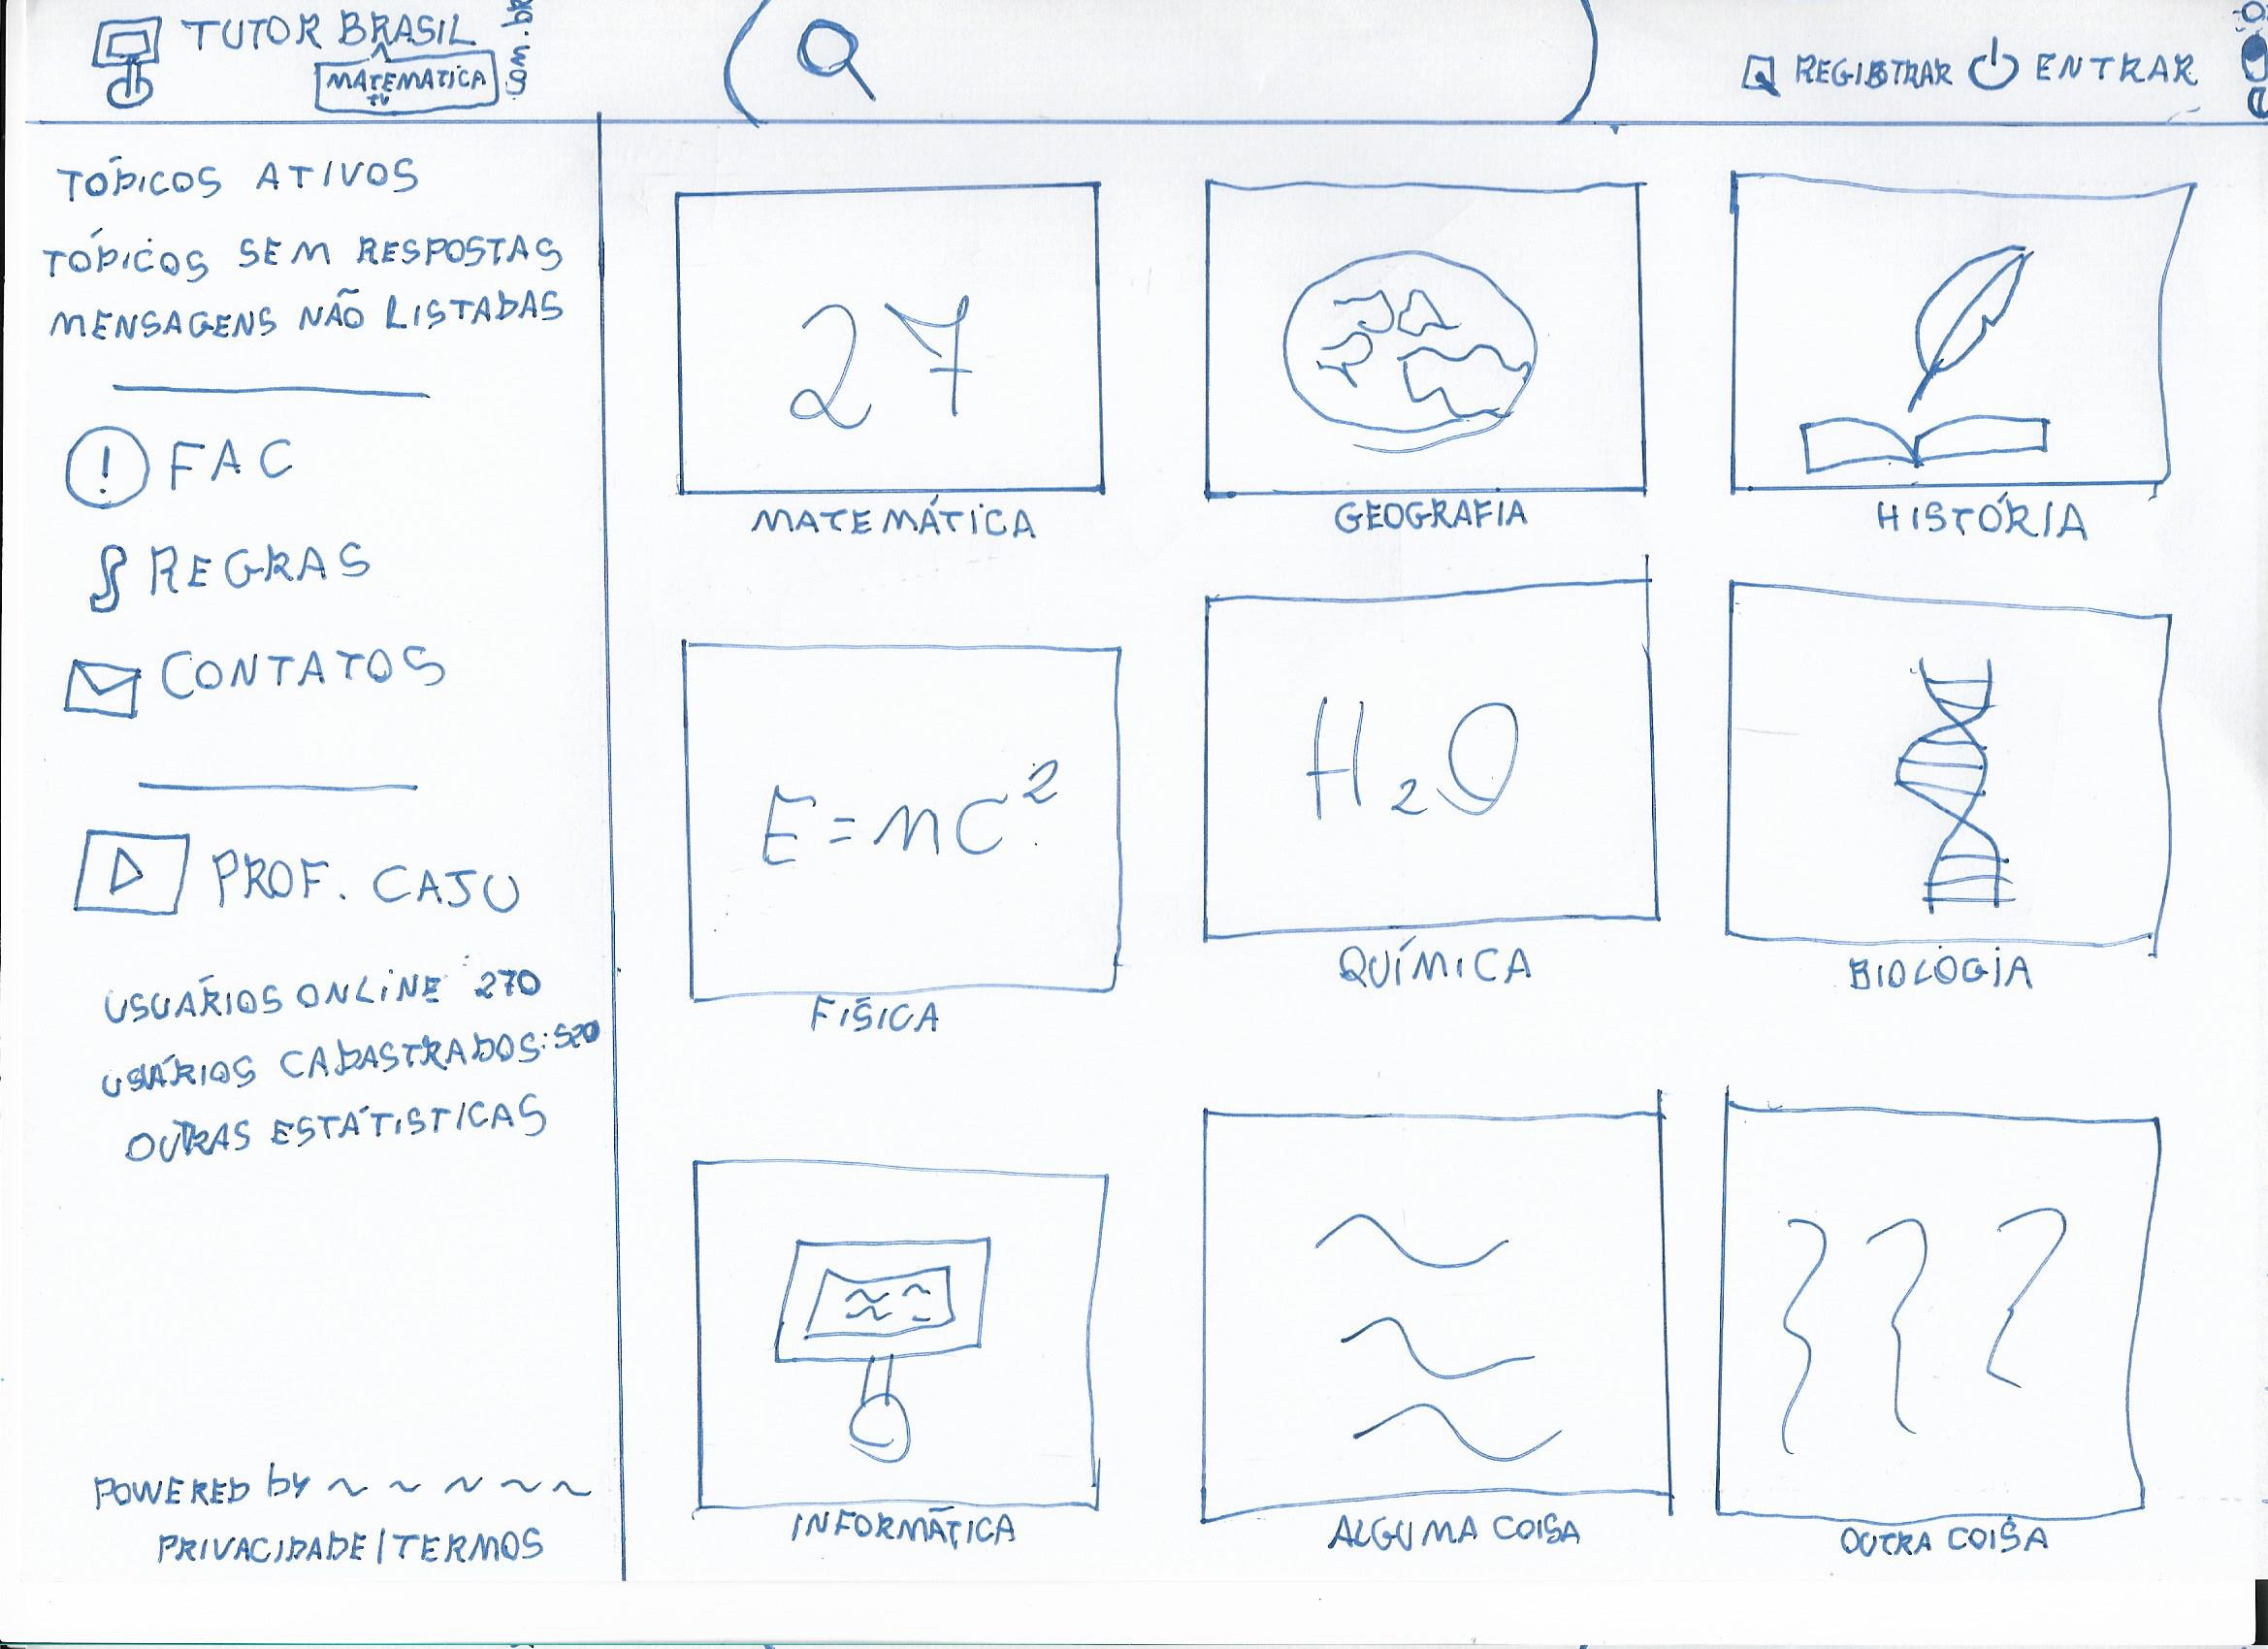 TUTOR BRASIL
MATEMATICA
TV
.com.br
REGISTRAR
ENTRAR
TÓPICOS ATIVOS
TÓPICOS SEM RESPOSTAS
MENSAGENS NÃO LISTADAS
! FAC
REGRAS
CONTATOS
PROF. CAJU
USUÁRIOS ONLINE : 270
USUÁRIOS CADASTRADOS: 520
OUTRAS ESTÁTISTICAS
POWERED by ~ ~ ~ ~ ~
PRIVACIDADE / TERMOS
27
MATEMÁTICA
GEOGRAFIA
HISTÓRIA
E = mC²
FÍSICA
H₂O
QUÍMICA
BIOLOGIA
INFORMÁTICA
ALGUMA COISA
OUTRA COISA